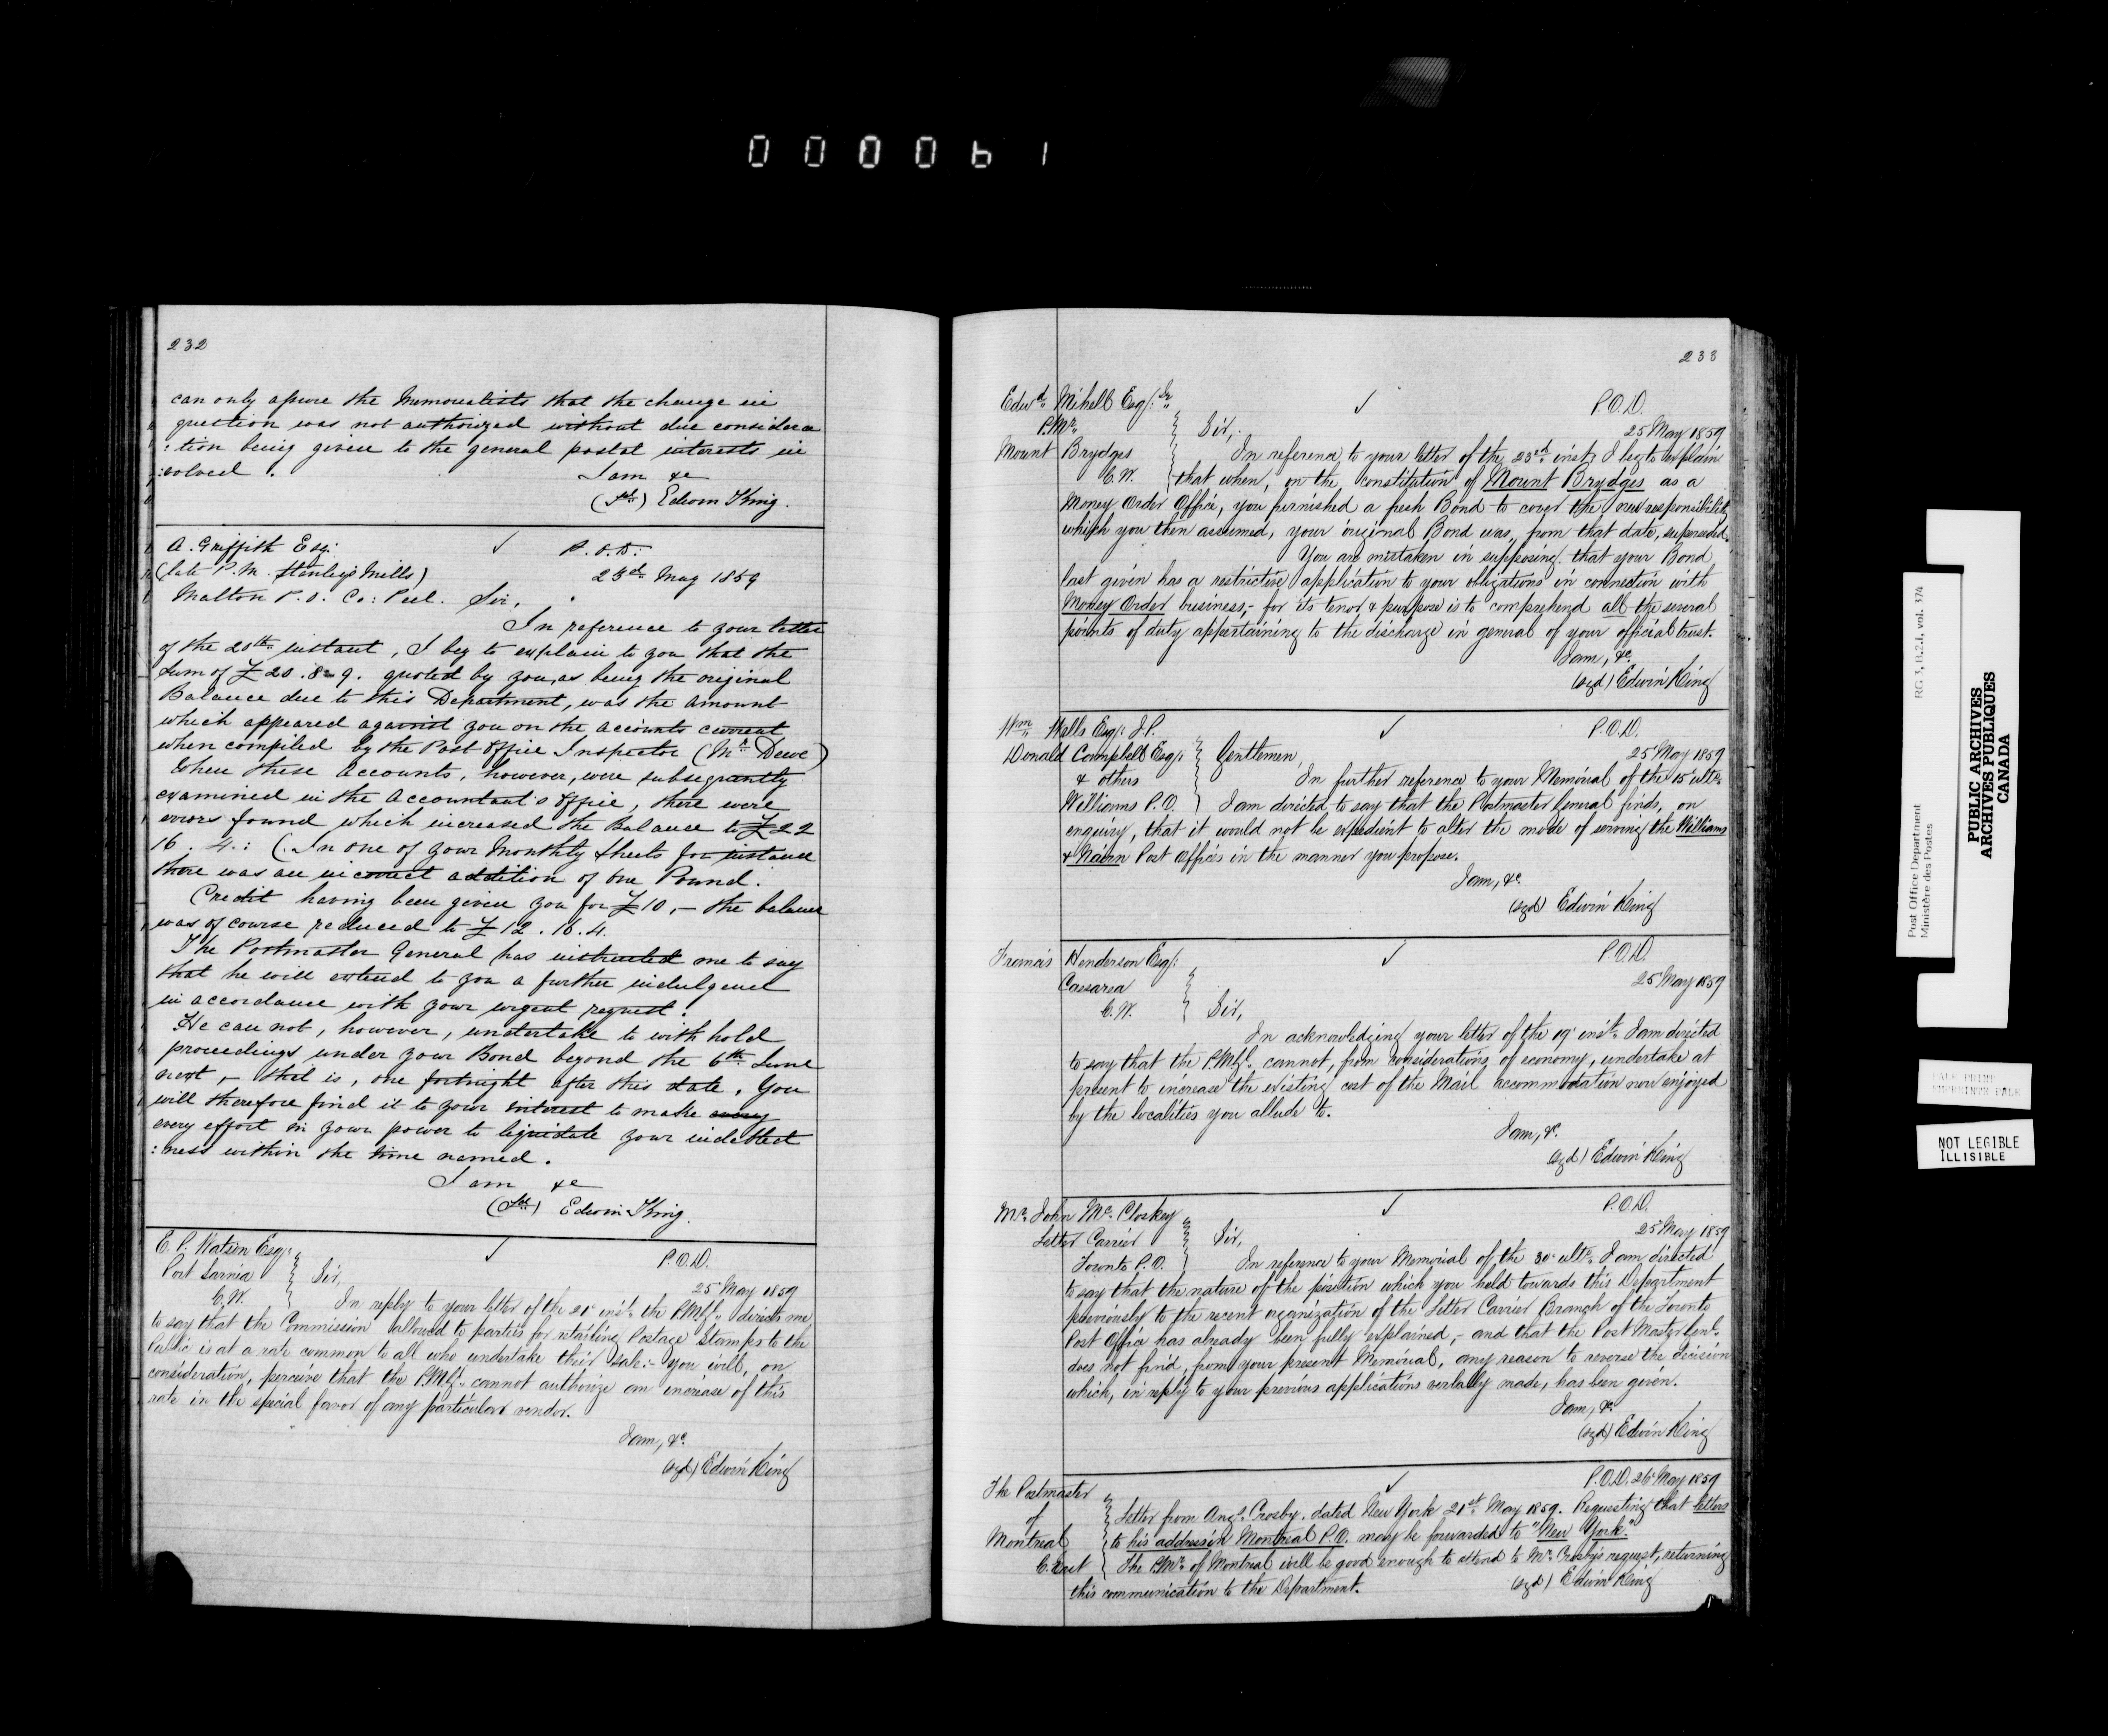 000061
232
can only assure the Memorialists that the change in
question was not authorized without due considera
:tion being given to the general postal interests in
:volved.
I am &c
(sd) Edwin King.
A. Griffith Esq:
(late P.M. Stanley's Mills)
Malton P.O. Co: Peel.
✓
P.O.D:
23rd May 1859
Sir,
In reference to your letter
of the 20th instant, I beg to explain to you that the
sum of £20.8.9. quoted by you, as being the original
Balance due to this Department, was the amount
which appeared against you on the accounts current
when compiled by the Post Office Inspector (Mr. Dewe)
When these Accounts, however, were subsequently
examined in the Accountant's Office, there were
errors found which increased the Balance to £22
16. 4.: (In one of your Monthly Sheets for instance
there was an incorrect addition of One Pound.
Credit having been given you for £10,- the balance
was of course reduced to £12.16.4.
The Postmaster General has instructed me to say
that he will extend to you a further indulgence
in accordance with your urgent request.
He can not, however, undertake to with hold
proceedings under your Bond beyond the 6th June
next,- that is, one fortnight after this date. You
will therefore find it to your interest to make every
every effort in your power to liquidate your indebted
:ness within the time named.
I am &c
(sd) Edwin King.
E. P. Watson Esq:
Port Sarnia
C.W.
✓
P.O.D.
25 May 1859
Sir,
In reply to your letter of the 21st inst. the P.M.Gl. directs me
to say that the Commission allowed to parties for retailing Postage Stamps to the
Public is at a rate common to all who undertake their sale:- you will, on
consideration, perceive that the P.M.Gl. cannot authorize an increase of this
rate in the special favor of any particular vendor.
I am, &c.
(sgd) Edwin King
233
Edwd. Mihell Esq: Jr.
P.Mr.
Mount Brydges
C.W.
✓
P.O.D.
25 May 1859
Sir,
In reference to your letter of the 23rd inst, I beg to explain
that when, on the constitution of Mount Brydges as a
Money Order Office, you furnished a fresh Bond to cover the new responsibility
which you then assumed, your original Bond was, from that date, superseded.
You are mistaken in supposing that your Bond
last given has a restrictive application to your obligations in connection with
Money Order business,- for its tenor & purpose is to comprehend all the several
points of duty appertaining to the discharge in general of your official trust.
I am, &c.
(sgd) Edwin King
Wm. Wells Esq: J.P.
Donald Campbell Esq:
& others
Williams P.O.
✓
P.O.D.
25 May 1859
Gentlemen,
In further reference to your Memorial of the 15 ulto.
I am directed to say that the Postmaster General finds, on
enquiry, that it would not be expedient to alter the mode of serving the Williams
& Nairn Post Offices in the manner you propose.
I am, &c.
(sgd) Edwin King
Francis Henderson Esq:
Caesarea
C.W.
✓
P.O.D.
25 May 1859
Sir,
In acknowledging your letter of the 19 inst. I am directed
to say that the P.M.Gl. cannot, from considerations of economy, undertake at
present to increase the existing cost of the Mail accommodation now enjoyed
by the localities you allude to.
I am, &c.
(sgd) Edwin King
Mr. John Mc.Closkey
Letter Carrier
Toronto P.O.
✓
P.O.D.
25 May 1859
Sir,
In reference to your Memorial of the 30 ulto. I am directed
to say that the nature of the position which you held towards this Department
previously to the recent organization of the Letter Carrier Branch of the Toronto
Post Office has already been fully explained,- and that the Post Master Genl.
does not find, from your present Memorial, any reason to reverse the decision
which, in reply to your previous applications verbally made, has been given.
I am, &c.
(sgd) Edwin King
The Postmaster
of
Montreal
C. East
✓
P.O.D. 26 May 1859
Letter from Angs. Crosby, dated New York 21st. May 1859. Requesting that letters
to his address in Montreal P.O. may be forwarded to "New York."
The P.Mr. of Montreal will be good enough to attend to Mr. Crosby's request, returning
this communication to the Department.
(sgd) Edwin King
Post Office Department
Ministère des Postes
RG 3, D.2.1, vol. 374
PUBLIC ARCHIVES
ARCHIVES PUBLIQUES
CANADA
PALE PRINT
NOT LEGIBLE
ILLISIBLE